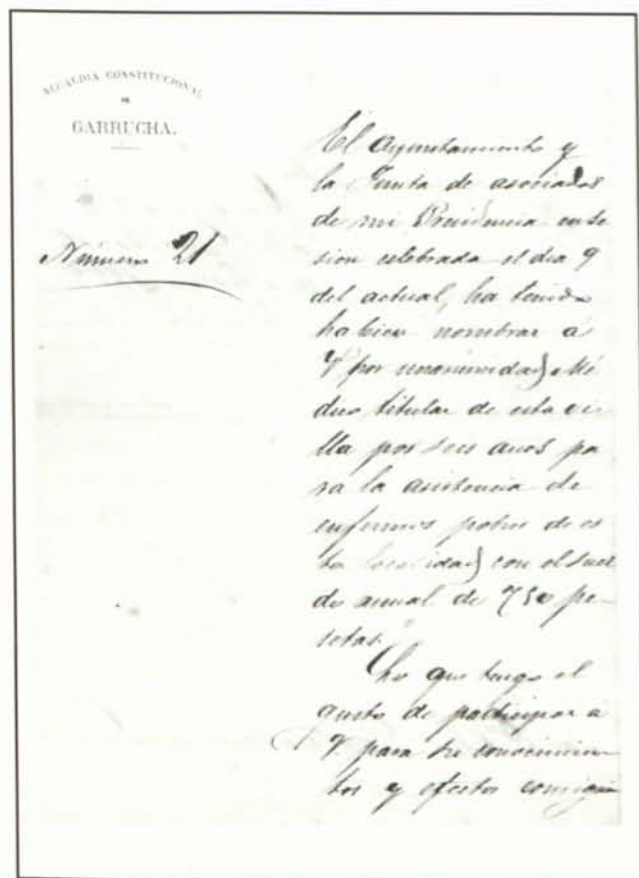 ALCALDIA CONSTITUCIONAL
DE
GARRUCHA.
Número 21
El Ayuntamiento y
la Junta de asociados
de mi Presidencia en se
sion celebrada el dia 9
del actual, ha tenido
ha bien nombrar á
V por unanimidad Mé
dico titular de esta vi
lla por seis años pa
ra la asistencia de
enfermos pobres de es
ta localidad con el suel
do anual de 750 pe
setas.
Lo que tengo el
gusto de participar a
V. para su conocimien
tos y efectos consiguien